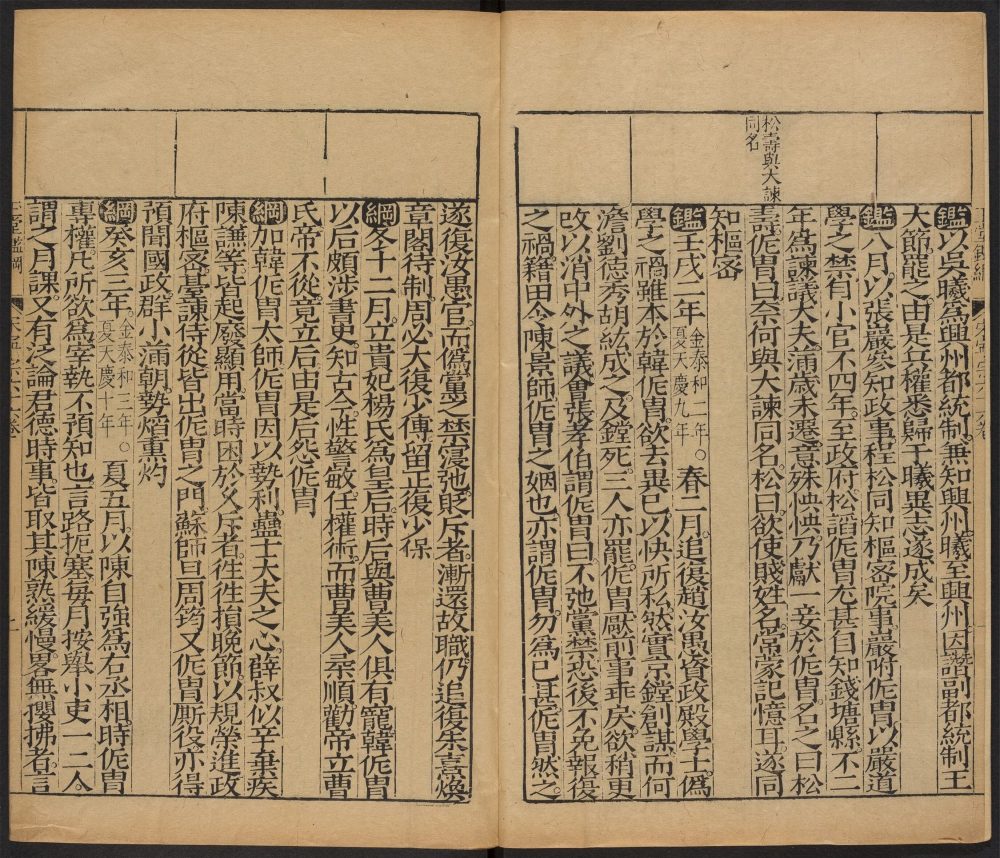 松壽與大諫
同名
鑑以吳曦爲興州都統制兼知興州曦至興州因譖副都統制王
大節罷之由是兵權悉歸于曦異志遂成矣
鑑八月以張巖參知政事程松同知樞密院事巖附侂胄以嚴道
學之禁有小官不四年至政府松諂侂胄尤甚自知錢塘縣不二
年爲諫議大夫滿歲未遷意殊怏怏乃獻一妾於侂胄名之曰松
壽侂胄曰奈何與大諫同名松曰欲使賤姓名常蒙記憶耳遂同
知樞密
鑑壬戌二年金泰和二年。夏天慶九年春二月追復趙汝愚資政殿學士僞
學之禍雖本於韓侂胄欲去異己以快所私然實京鏜創謀而何
澹劉德秀胡紘成之及鏜死三人亦罷侂胄厭前事乖戾欲稍更
改以消中外之議會張孝伯謂侂胄曰不弛黨禁恐後不免報復
之禍籍田令陳景師侂胄之姻也亦謂侂胄勿爲已甚侂胄然之
遂復汝愚官而僞黨之禁寖弛貶斥者漸還故職仍追復朱熹煥
章閣待制周必大復少傅留正復少保
綱冬十二月立貴妃楊氏爲皇后時后與曹美人俱有寵韓侂胄
以后頗涉書史知古今性警敏任權術而曹美人柔順勸帝立曹
氏帝不從竟立后由是后怨侂胄
綱加韓侂胄太師侂胄因以勢利蠱士大夫之心薛叔似辛棄疾
陳謙等皆起廢顯用當時困於久斥者往往損晚節以規榮進政
府樞密臺諫侍從皆出侂胄之門蘇師旦周筠又侂胄厮役亦得
預聞國政群小滿朝勢焰熏灼
綱癸亥三年金泰和三年。夏天慶十年夏五月以陳自強爲右丞相時侂胄
專權凡所欲爲宰執不預知也言路扼塞每月按舉小吏一二人
謂之月課又有泛論君德時事皆取其陳熟緩慢畧無攖拂者言